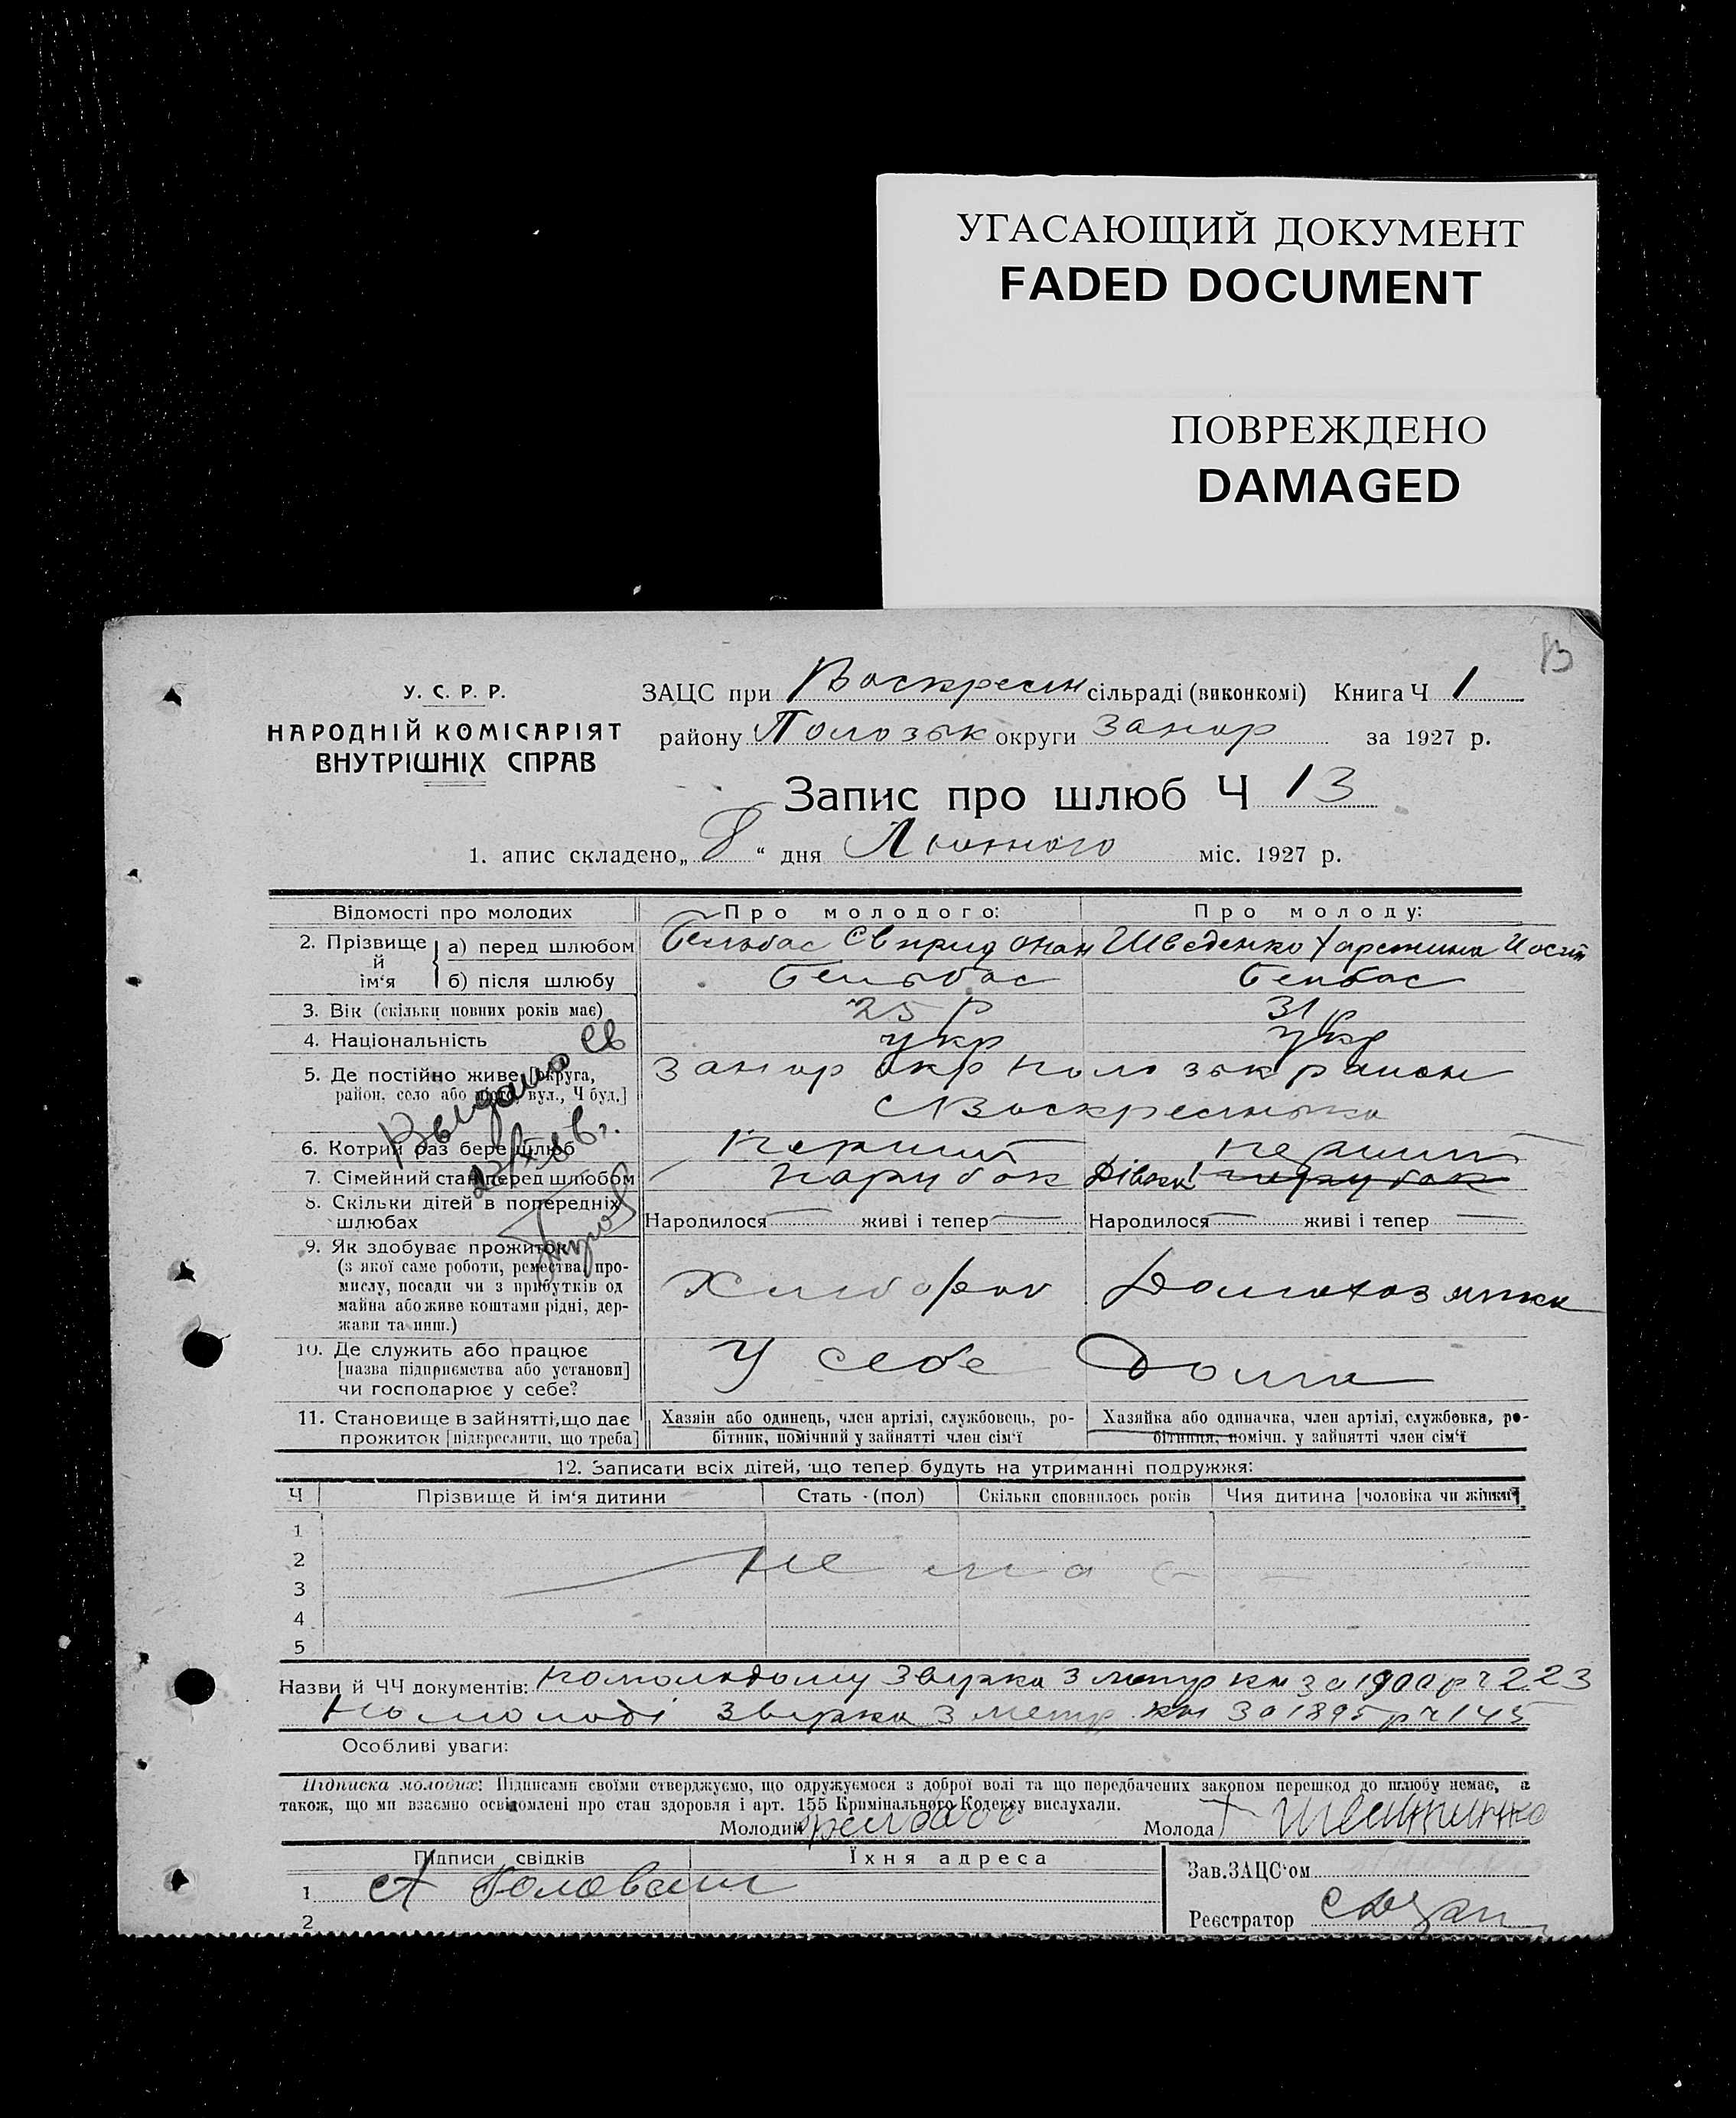 УГАСАЮЩИЙ ДОКУМЕНТ
FADED DOCUMENT
ПОВРЕЖДЕНО
DAMAGED
13
У. С. Р. Р.
НАРОДНІЙ КОМІСАРІЯТ
ВНУТРІШНІХ СПРАВ
ЗАЦС при Воскресен сільраді (виконкомі) Книга Ч 1
району Пологзьк округи Запор за 1927 р.
Запис про шлюб Ч 13
1. апис складено „8“ дня Лютого міс. 1927 р.
Відомості про молодих Про молодого: Про молоду:
2. Прізвище й ім‘я а) перед шлюбом Бельбас Свирид Шведенко Харетина Йосип
б) після шлюбу Бельбас Белбас
3. Вік (скільки повних років має) 25 р 31 р
4. Національність укр укр
5. Де постійно живе [округа, Запор окр Пологзьк район
район, село або місто, вул., Ч буд.] с Воскресенка
Выдано св
6. Котрий раз бере шлюб перший перший
7. Сімейний стан перед шлюбом парубок Дівка парубок
8. Скільки дітей в попередніх
шлюбах Народилося — живі і тепер — Народилося — живі і тепер —
9. Як здобуває прожиток
(з якої саме роботи, ремества, про-
мислу, посади чи з прибутків од
майна або живе коштами рідні, дер-
жави та инш.) Хлібороб Домохозяйка
10. Де служить або працює
[назва підприємства або установи]
чи господарює у себе? У себе Дома
11. Становище в зайнятті, що дає Хазяін або одинець, член артілі, службовець, ро- Хазяйка або одиначка, член артілі, службовка, ро-
прожиток [підкреслити, що треба] бітник, помічний у зайнятті член сім‘ї бітниця, помічн. у зайнятті член сім‘ї
12. Записати всіх дітей, що тепер будуть на утриманні подружжя:
Ч Прізвище й ім‘я дитини Стать (пол) Скільки сповнилось років Чия дитина [чоловіка чи жінки]
1
2 Не має
3
4
5
Назви й ЧЧ документів: На молодому Звірка з метр кн за 1900 р ч 223
На молоді звірка з метр. кн за 1895 р ч 145
Особливі уваги:
Підписка молодих: Підписами своїми стверджуємо, що одружуємося з доброї волі та що передбачених законом перешкод до шлюбу немає, а
також, що ми взаємно освідомлені про стан здоровля і арт. 155 Кримінального Кодексу вислухали.
Молодий Бельбас Молода
Підписи свідків Їхня адреса Зав. ЗАЦС‘ом
1 А Головаш
2 Реєстратор